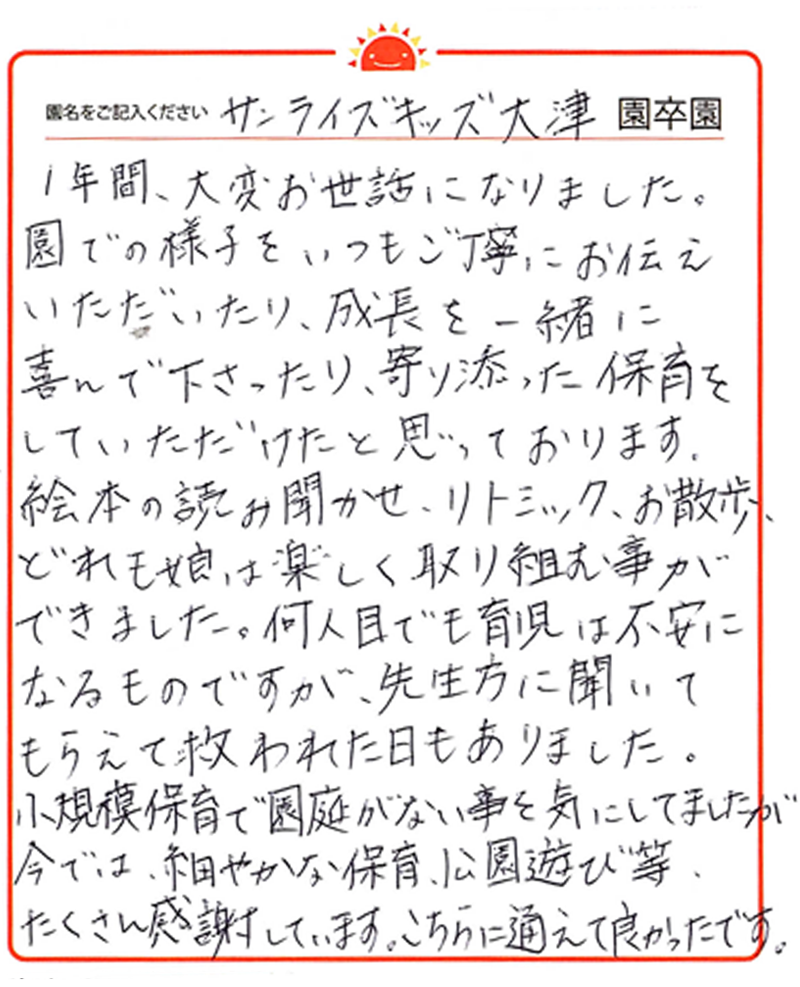 園名をご記入ください サンライズキッズ大津 園卒園
1年間、大変お世話になりました。
園での様子をいつもご丁寧にお伝え
いただいたり、成長を一緒に
喜んで下さったり、寄り添った保育を
していただけたと思っております。
絵本の読み聞かせ、リトミック、お散歩、
どれも娘は楽しく取り組む事が
できました。何人目でも育児は不安に
なるものですが、先生方に聞いて
もらえて救われた日もありました。
小規模保育で園庭がない事を気にしてましたが
今では、細やかな保育、公園遊び等、
たくさん感謝しています。こちらに通えて良かったです。